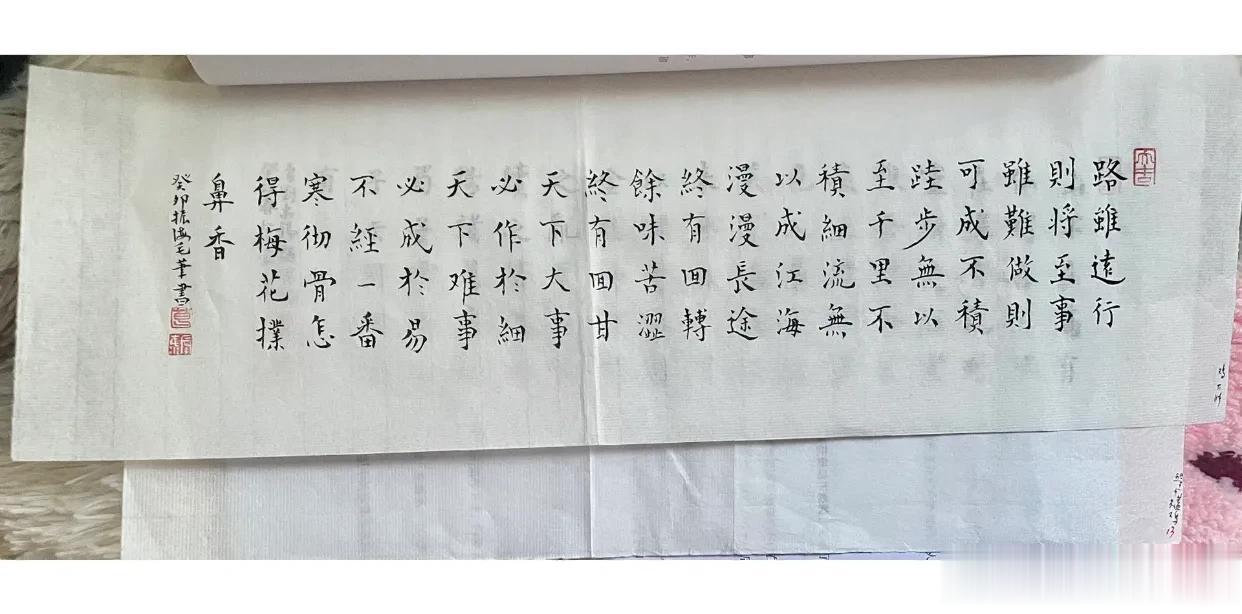 路雖遠行
則將至事
雖難做則
可成不積
跬步無以
至千里不
積細流無
以成江海
漫漫長途
終有回轉
餘味苦澀
終有回甘
天下大事
必作於細
天下难事
必成於易
不經一番
寒彻骨怎
得梅花撲
鼻香
癸卯振海毛筆書